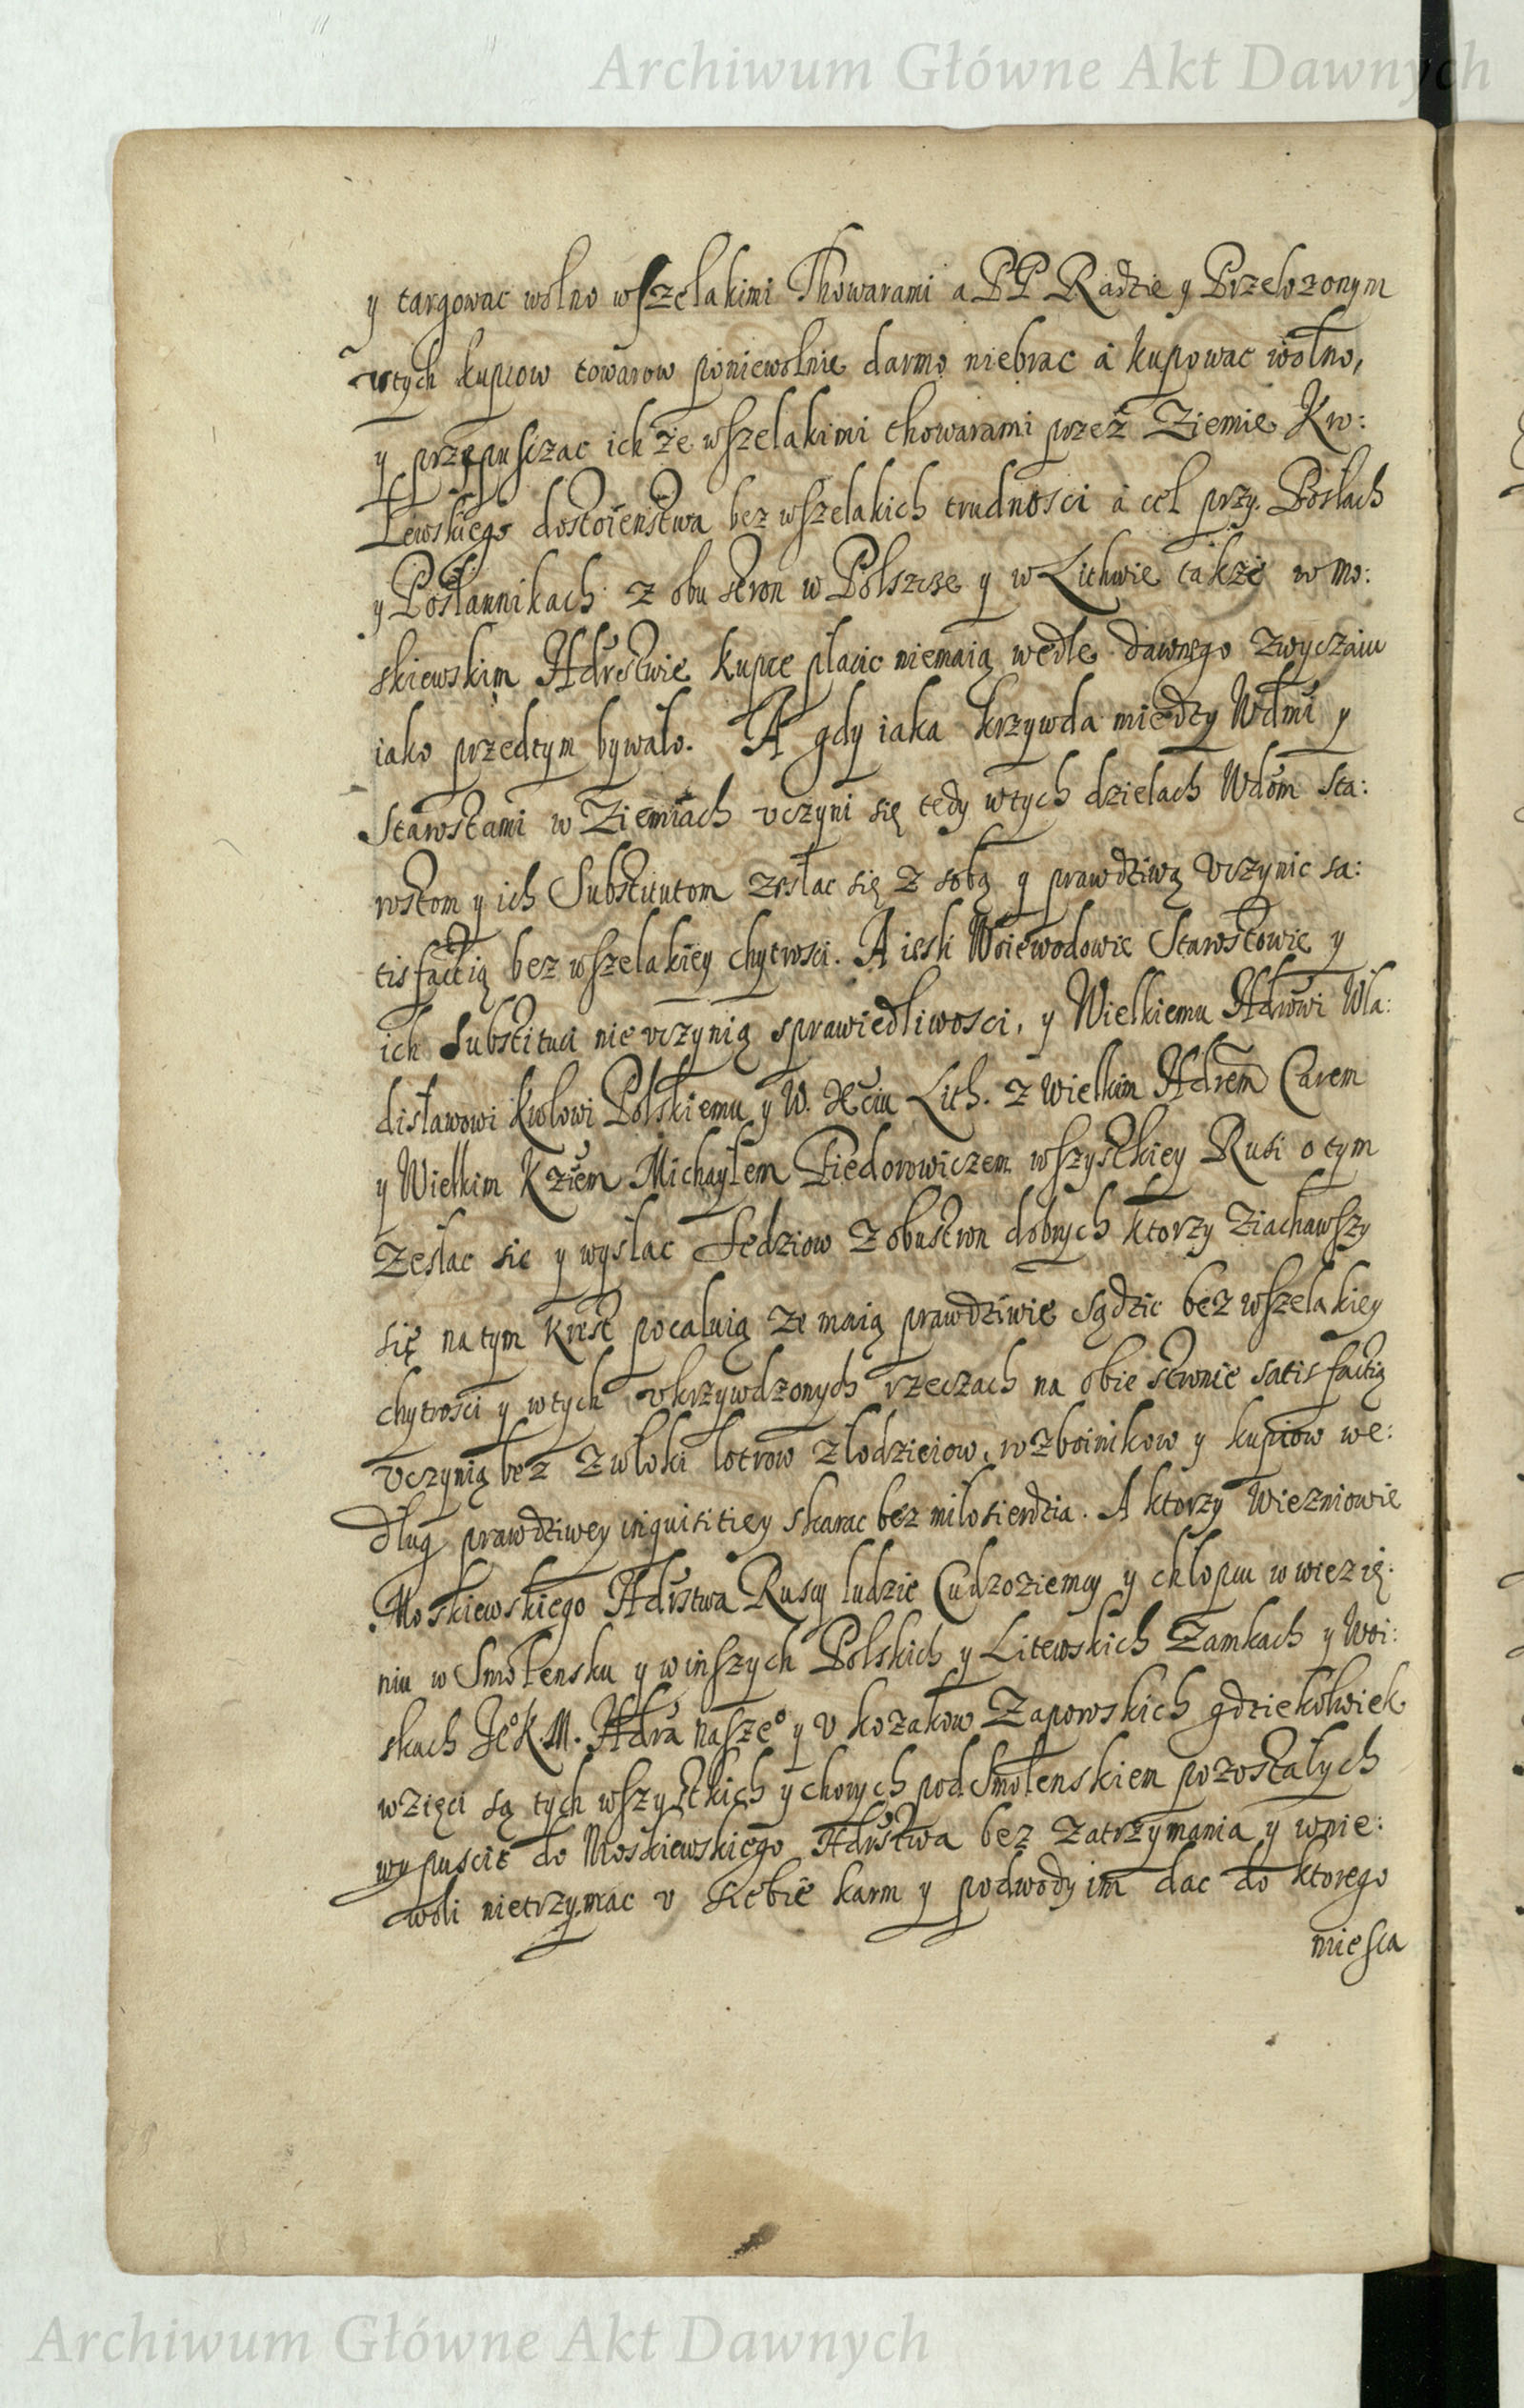 Archiwum Główne Akt Dawnych
y targowac wolno wszelakimi Thowarami a PP Radzie y Przelozonym
w tych kupcow towarow poniewolnie darmo niebrac á kupowac wolno,
y przepusczac ich ze wszelakimi thowarami przez Ziemie Kro:
lewskiego dostoienstwa bez wszelakich trudnosci á cel przy Posłach
y Posłannikach z obu stron w Polszcze y w Lithwie także w Mo:
skiewskim Hdrstwie kupce płacic niemaią wedle dawnego zwyczaiu
iako przedtym bywało. A gdy iaka krzywda miedzy Wdmi y
Starostami w Ziemiach vczyni się tedy w tych dzielach Wdom Sta:
rostom y ich Substitutom zesłac się z sobą y prawdziwą vczynic sa:
tisfactią bez wszelakiey chytrosci. A iesli Woiewodowie Starostowie y
ich Substituci nie vczynią sprawiedliwosci, y Wielkiemu Hdrowi Wła:
disławowi Krolowi Polskiemu y W. Xciu Lith. z Wielkim Hdrem Carem
y Wielkim Kziem Michayłem Fiedorowiczem wszystkiey Rusi o tym
zesłac sie y wysłac Sedziow z obustron dobrych ktorzy ziachawszy
się na tym krest pocaluią ze maią prawdziwie sądzic bez wszelakiey
chytrosci y w tych vkrzywdzonych rzeczach na obie stronie satisfactią
vczynią bez zwłoki łotrow złodzieiow, rozboinikow y kupcow we:
dług prawdziwey inquisitiey skarac bez miłosierdzia. A ktorzy Wiezniowie
Moskiewskiego Hdrstwa Ruscy ludzie Cudzoziemcy y chłopcu w wiezię:
niu w Smolensku y w inszych Polskich y Litewskich Zamkach y Woi:
skach Jeo K. M. Hdra naszeo y v kozakow Zaporowskich gdziekolwiek
wzięci są tych wszystkich y chorych pod Smolenskiem pozostałych
wypuscic do Moskiewskiego Hdrstwa bez zatrzymania y wnie:
woli nietrzymac v siebie karm y podwody im dac do ktorego
miesca
Archiwum Główne Akt Dawnych